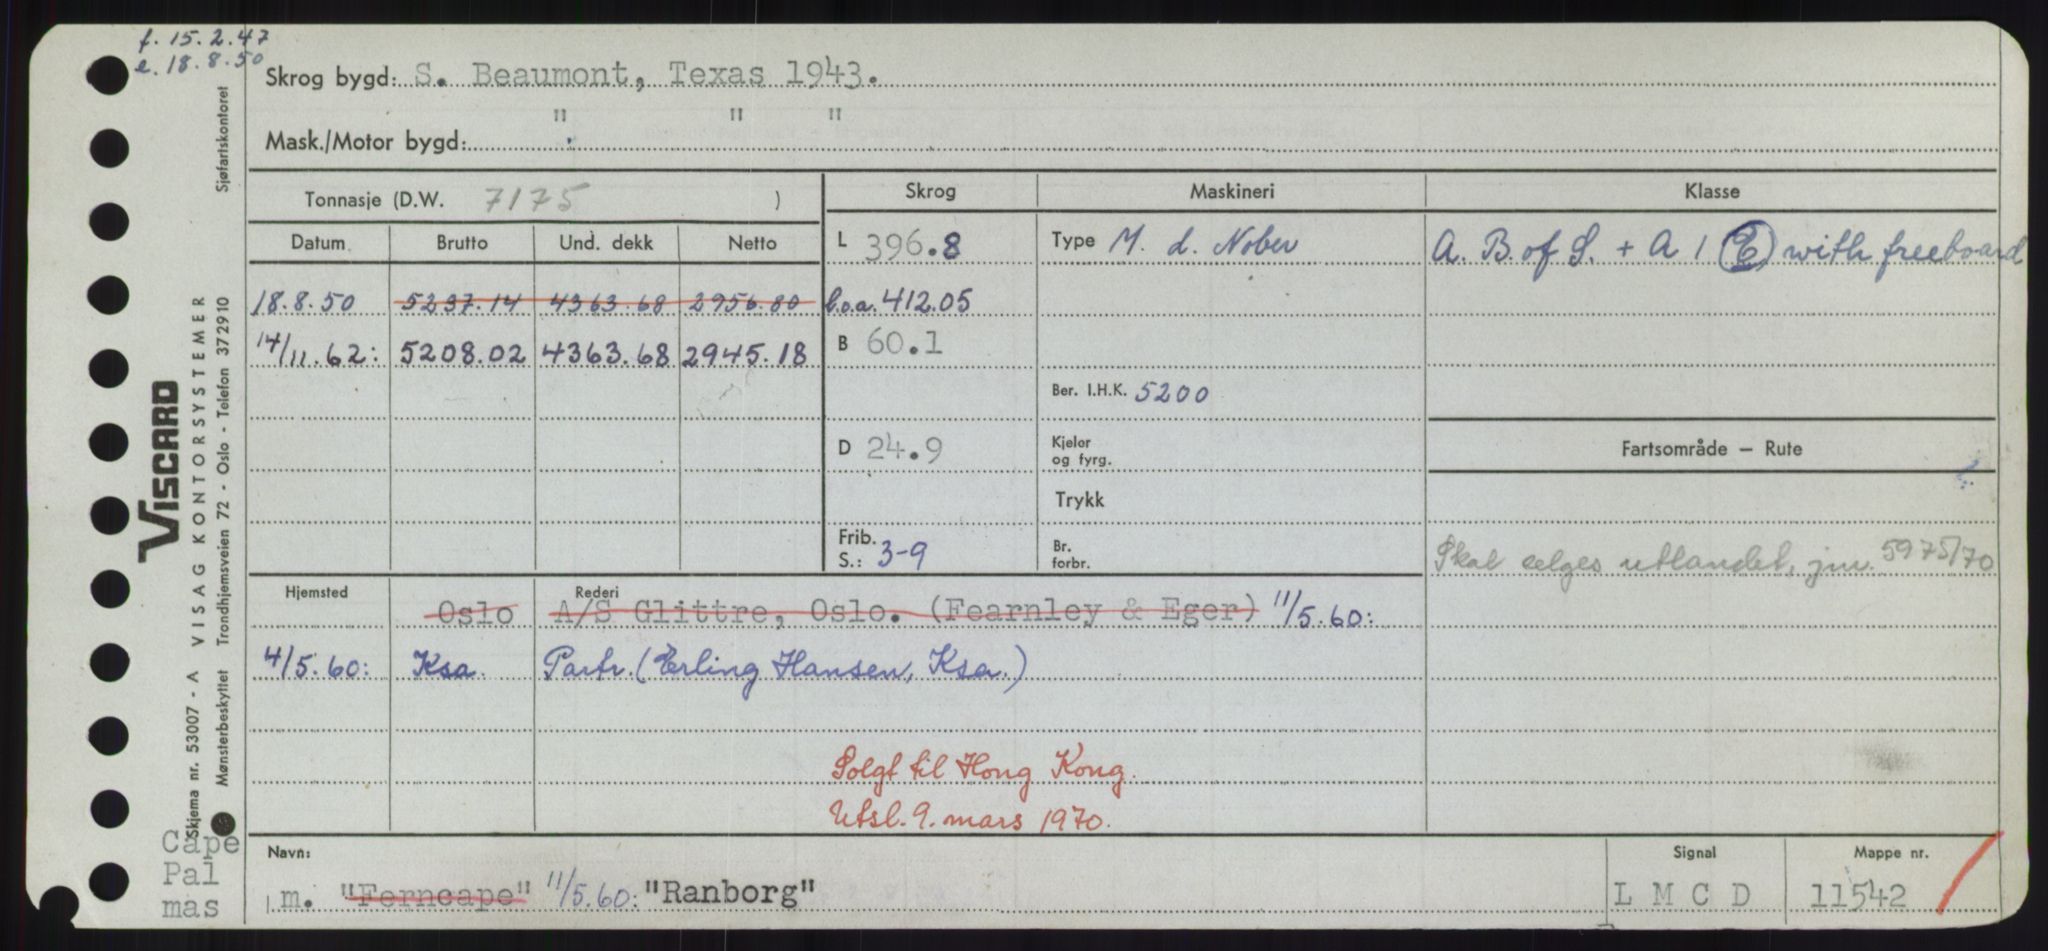 f. 15.2.47
e. 18.8.50
Skrog bygd: S. Beaumont, Texas 1943.
" " "
Mask./Motor bygd:
Tonnasje (D.W. 7175 )
Skrog
Maskineri
Klasse
Datum
Brutto
Und. dekk
Netto
L 396.8
Type M. d. Nober
A. B. of S. + A 1 (E) with freeboard
18.8.50 5237.14 4363.68 2956.80
l.o.a. 412.05
14/11.62: 5208.02 4363.68 2945.18
B 60.1
Ber. I.H.K. 5200
D 24.9
Kjeler
og fyrg.
Fartsområde – Rute
Trykk
Frib.
S.: 3-9
Br.
forbr.
Skal selges utlandet, jnr. 5975/70
Hjemsted
Rederi
Oslo A/S Glittre, Oslo. (Fearnley & Eger) 11/5.60:
4/5.60: Ksa. Partr. (Erling Hansen, Ksa.)
Solgt til Hong Kong.
Utsl. 9. mars 1970.
Navn:
Signal
Mappe nr.
m. "Ferncape" 11/5.60: "Ranborg"
L M C D
11542
Cape
Pal
mas
VISCARD
VISAG KONTORSYSTEMER
Skjema nr. 53007 - A
Mønsterbeskyttet Trondhjemsveien 72 - Oslo - Telefon 372910 Sjøfartskontoret